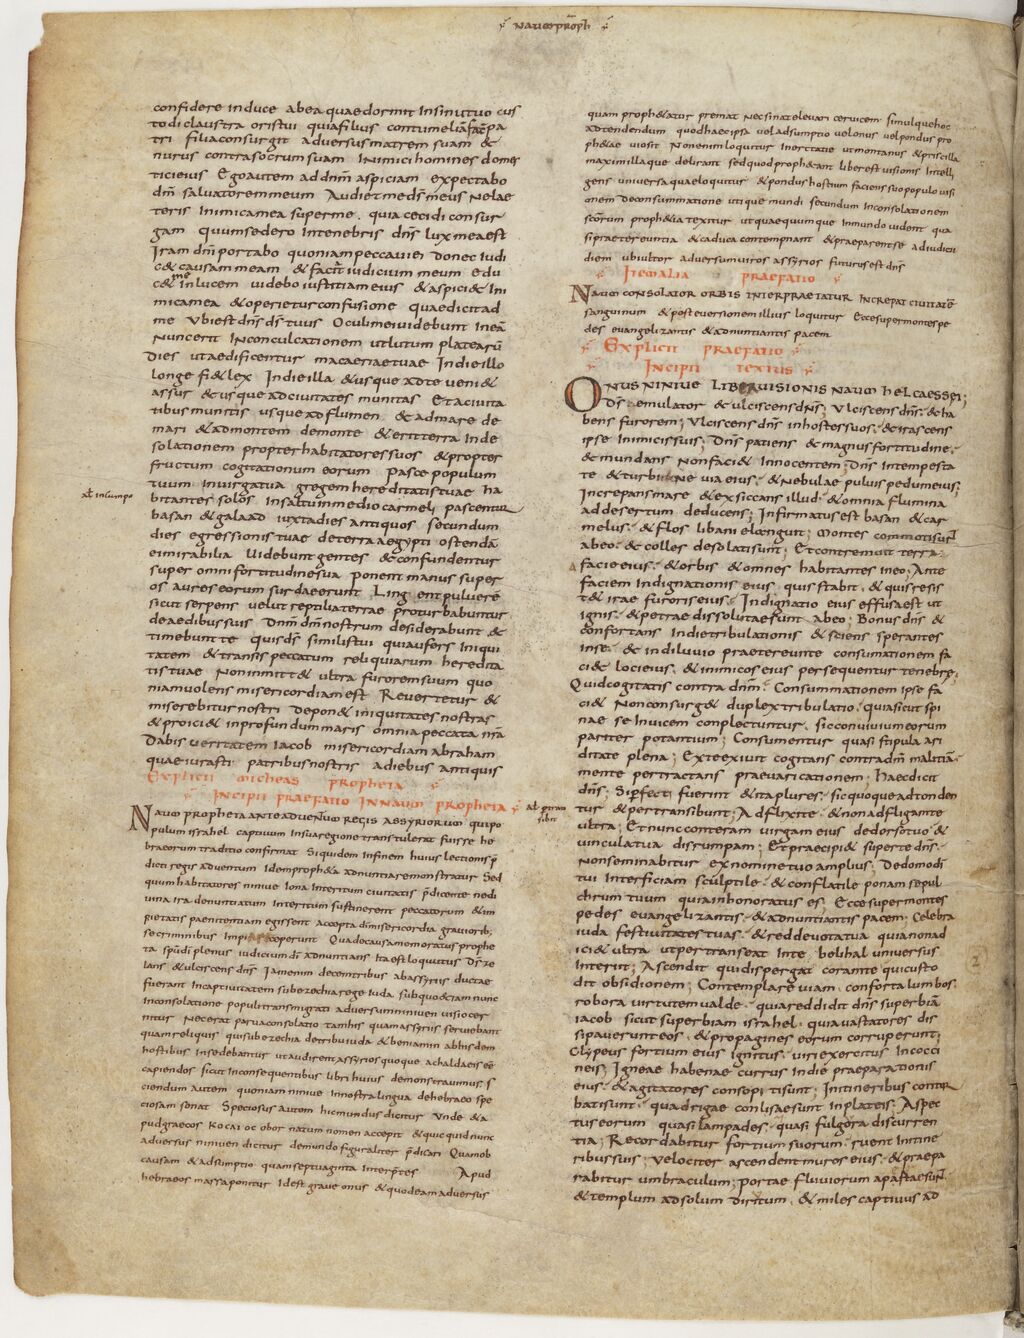 naum proph
confidere induce abea quae dormit insinu tuo cus
todi claustra oris tui quia filius contumeliam facit pa
tri filia consurgit adversus matrem suam &
nurus contra socrum suam Inimici hominis domes
tici eius Ego autem ad dnm aspiciam expectabo
dm salvatorem meum Audiet me ds meus Ne lae
teris inimica mea super me. quia cecidi consur
gam quum sedero in tenebris dns lux mea est
Iram dni portabo quoniam peccavi ei donec iudi
c& causam meam & faciat iudicium meum edu
c& me in lucem videbo iustitiam eius & aspici& ini
mica mea & operietur confusione quae dicit ad
me Ubi est dns ds tuus Oculi mei videbunt in eam
Nunc erit in conculcationem ut lutum platearum
Dies ut aedificentur maceriae tuae In die illo
longe fi& lex In die illa & usque ad te veni& de
assur & usque ad civitates munitas Et a civita
tibus munitis usque ad flumen & ad mare de
mari & ad montem de monte & erit terra in de
solationem propter habitatores suos & propter
fructum cogitationum eorum Pasce populum
tuum in virga tua gregem hereditatis tuae ha
al in lumpo
bitantes solos in saltu in medio carmeli pascentur
basan & galaad iuxta dies antiquos secundum
dies egressionis tuae de terra aegypti ostendam
ei mirabilia Videbunt gentes & confundentur
super omni fortitudine sua ponent manus super
os aures eorum surdae erunt Lingent pulverem
sicut serpens velut reptilia terrae proturbabuntur
de aedibus suis Dnm dm nostrum desiderabunt &
timebunt te quis ds similis tui qui aufers iniqui
tatem & transis peccatum reliquiarum heredita
tis tuae Non inmitt& ultra furorem suum quo
niam volens misericordiam est Revertetur &
miserebitur nostri Depon& iniquitates nostras
& proici& in profundum maris omnia peccata nra
Dabis veritatem Iacob misericordiam abraham
quae iurasti patribus nostris a diebus antiquis
Explicit Micheas propheta
Incipit praefatio in Naum propheta
Naum propheta ante adventum regis assyriorum qui po
pulum israhel captivum in sua regione transtulerat fuisse he
braeorum traditio confirmat Siquidem in finem huius lectionis p
dicti regis adventum idem propheta adnuntiare monstratur Sed
quum habitatores ninive Iona interitum civitatis p̄dicente ne di
vina ira denuntiatum interitum sustinerent peccatorum & im
pietatis paenitentiam egissent accepta di misericordia graviorib;
se criminibus coeperunt Qua de causa memoratus prophe
ta spu di plenus iudicium di adnuntians ita est loquutus Ds ze
lans & ulciscens dns Iam enim decem tribus ab assyriis ductae
fuerant in captivitatem sub ezechia rege iuda sub quo etiam nunc
in consolatione populi transmigrati adversum niniven visio cer
nitur Nec erat parva consolatio tam his quam assyriis serviebant
quam reliquis qui sub ezechia de tribu iuda & beniamin ab hisdem
hostibus insedebantur ut audirent assyrios quoque a chaldaeis eē
capiendos sicut in consequentibus libri huius demonstravimus s
ciendum autem quoniam ninive in nostra lingua de hebraeo spe
ciosam sonat Speciosus autem hic mundus dicitur Unde & a
pud graecos κοcαι oc ob ornatum nomen accepit & quicquid nunc
adversus niniven dicitur de mundo figuraliter p̄dicari Quamob
causam & adsumptio quam septuaginta interp̄tes Apud
hebraeos massa ponitur id est grave onus & quod eam adversus
quam prophetatur premat Nec sinat elevari cervicem simulque hoc
adtendendum quod haec ipsa vel adsumptio vel onus vel pondus pro
ph&ae visio sit Non enim loquitur in ecstasi ut montanus & priscilla
maximilla que delirant sed quod proph&ant liber est visionis intelli
gens universa quae loquitur & pondus hostium faciens suo populo visi
onem De consummatione utique mundi secundum in consolationem
scorum proph&ia texitur ut quaecumque in mundo vident qua
si praetereuntia & caduca contempnant & praeparent se ad iudicii
diem ubi ultor adversum viros assyrios futurus est dns
Item alia praefatio
Naum consolator orbis interpraetatur increpat civitatem
sanguinum & post eversionem illius loquitur Ecce super montes pe
des evangelizantis & adnuntiantis pacem
Explicit praefatio
Incipit textus
Onus Ninive liber visionis Naum helcaesei;
Ds aemulator & ulciscens dns; Ulciscens dns & ha
bens furorem; Ulciscens dns in hostes suos & irascens
ipse inimicis suis; Dns patiens & magnus fortitudine
& mundans non faci& innocentem; Dns in tempesta
te & turbine viae eius & nebulae pulvis pedum eius;
Increpans mare & exsiccans illud & omnia flumina
ad desertum deducens; Infirmatus est basan & car
melus & flos libani elanguit; Montes commoti sunt
ab eo & colles desolati sunt; Et contremuit terra
a facie eius & orbis & omnes habitantes in eo; Ante
faciem indignationis eius quis stabit & quis resis
t& irae furoris eius Indignatio eius effusa est ut
ignis & petrae dissolutae sunt ab eo; Bonus dns &
confortans in die tribulationis & sciens sperantes
in se & in diluvio praetereunte consumationem fa
ci& loci eius & inimicos eius persequentur tenebrę;
Quid cogitatis contra dnm; Consummationem ipse fa
ci& Non consurg& duplex tribulatio quia sicut spi
nae se invicem conplectuntur sic convivium eorum
pariter potantium; Consumentur quasi stipula ari
ditate plena; Ex te exivit cogitans contra dnm malitiam
mente pertractans praevaricationem; Haec dicit
al pertran
sibit
dns; Si perfecti fuerint & ita plures sic quoque adtonden
tur & pertransibunt; Adflixi te & non adfligam te
ultra; Et nunc conteram virgam eius de dorso tuo &
vincula tua disrumpam; Et praecipi& super te dns
non seminabitur ex nomine tuo amplius; De domo di
tui interficiam sculptile & conflatile ponam sepul
chrum tuum quia inhonoratus es; Ecce super montes
pedes evangelizantis & adnuntiantis pacem; Celebra
iuda festivitates tuas & redde vota tua quia non ad
ici& ultra ut pertranseat in te belihal universus
interiit; Ascendit qui dispergat coram te qui custo
dit obsidionem; Contemplare viam conforta lumbos
robora virtutem valde quia reddidit dns superbiam
iacob sicut superbiam israhel quia vastatores dis
sipaverunt eos & propagines eorum corruperunt;
Clypeus fortium eius ignitus viri exercitus in cocci
neis; Igneae habenae currus in die praeparationis
eius & agitatores consopiti sunt; In itineribus contur
bati sunt quadrigae conlisae sunt in plateis; Aspec
tus eorum quasi lampades quasi fulgora discurren
tia; Recordabitur fortium suorum ruent in itine
ribus suis; velociter ascendent muros eius & praepa
rabitur umbraculum; portae fluviorum apertae sunt
& templum ad solum dirutum & miles captivus ad